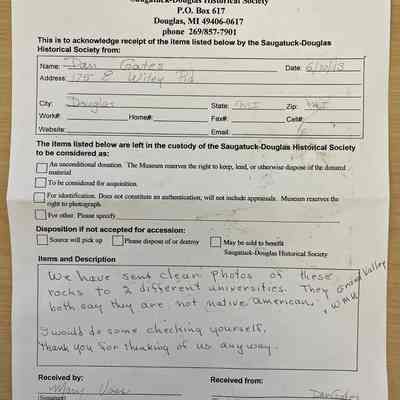 Saugatuck-Douglas Historical Society
P.O. Box 617
Douglas, MI 49406-0617
phone 269/857-7901
This is to acknowledge receipt of the items listed below by the Saugatuck-Douglas
Historical Society from:
Name: Dan Gates Date: 6/10/13
Address: 175 E. Wiley Rd.
City: Douglas State: MI Zip:
Work#: Home#: Fax#: Cell#:
Website: Email:
The items listed below are left in the custody of the Saugatuck-Douglas Historical Society
to be considered as:
An unconditional donation. The Museum reserves the right to keep, lend, or otherwise dispose of the donated
material
To be considered for acquisition.
For identification. Does not constitute an authentication, will not include appraisals. Museum reserves the
right to photograph
For other. Please specify
Disposition if not accepted for accession:
Source will pick up Please dispose of or destroy May be sold to benefit
Saugatuck-Douglas Historical Society
Items and Description
We have sent clear photos of these
rocks to 2 different universities. They Grand Valley
both say they are not native american. + WMU
I would do some checking yourself.
Thank you for thinking of us anyway.
Received by: Received from:
Mary Voss Dan Gates
(Signature)